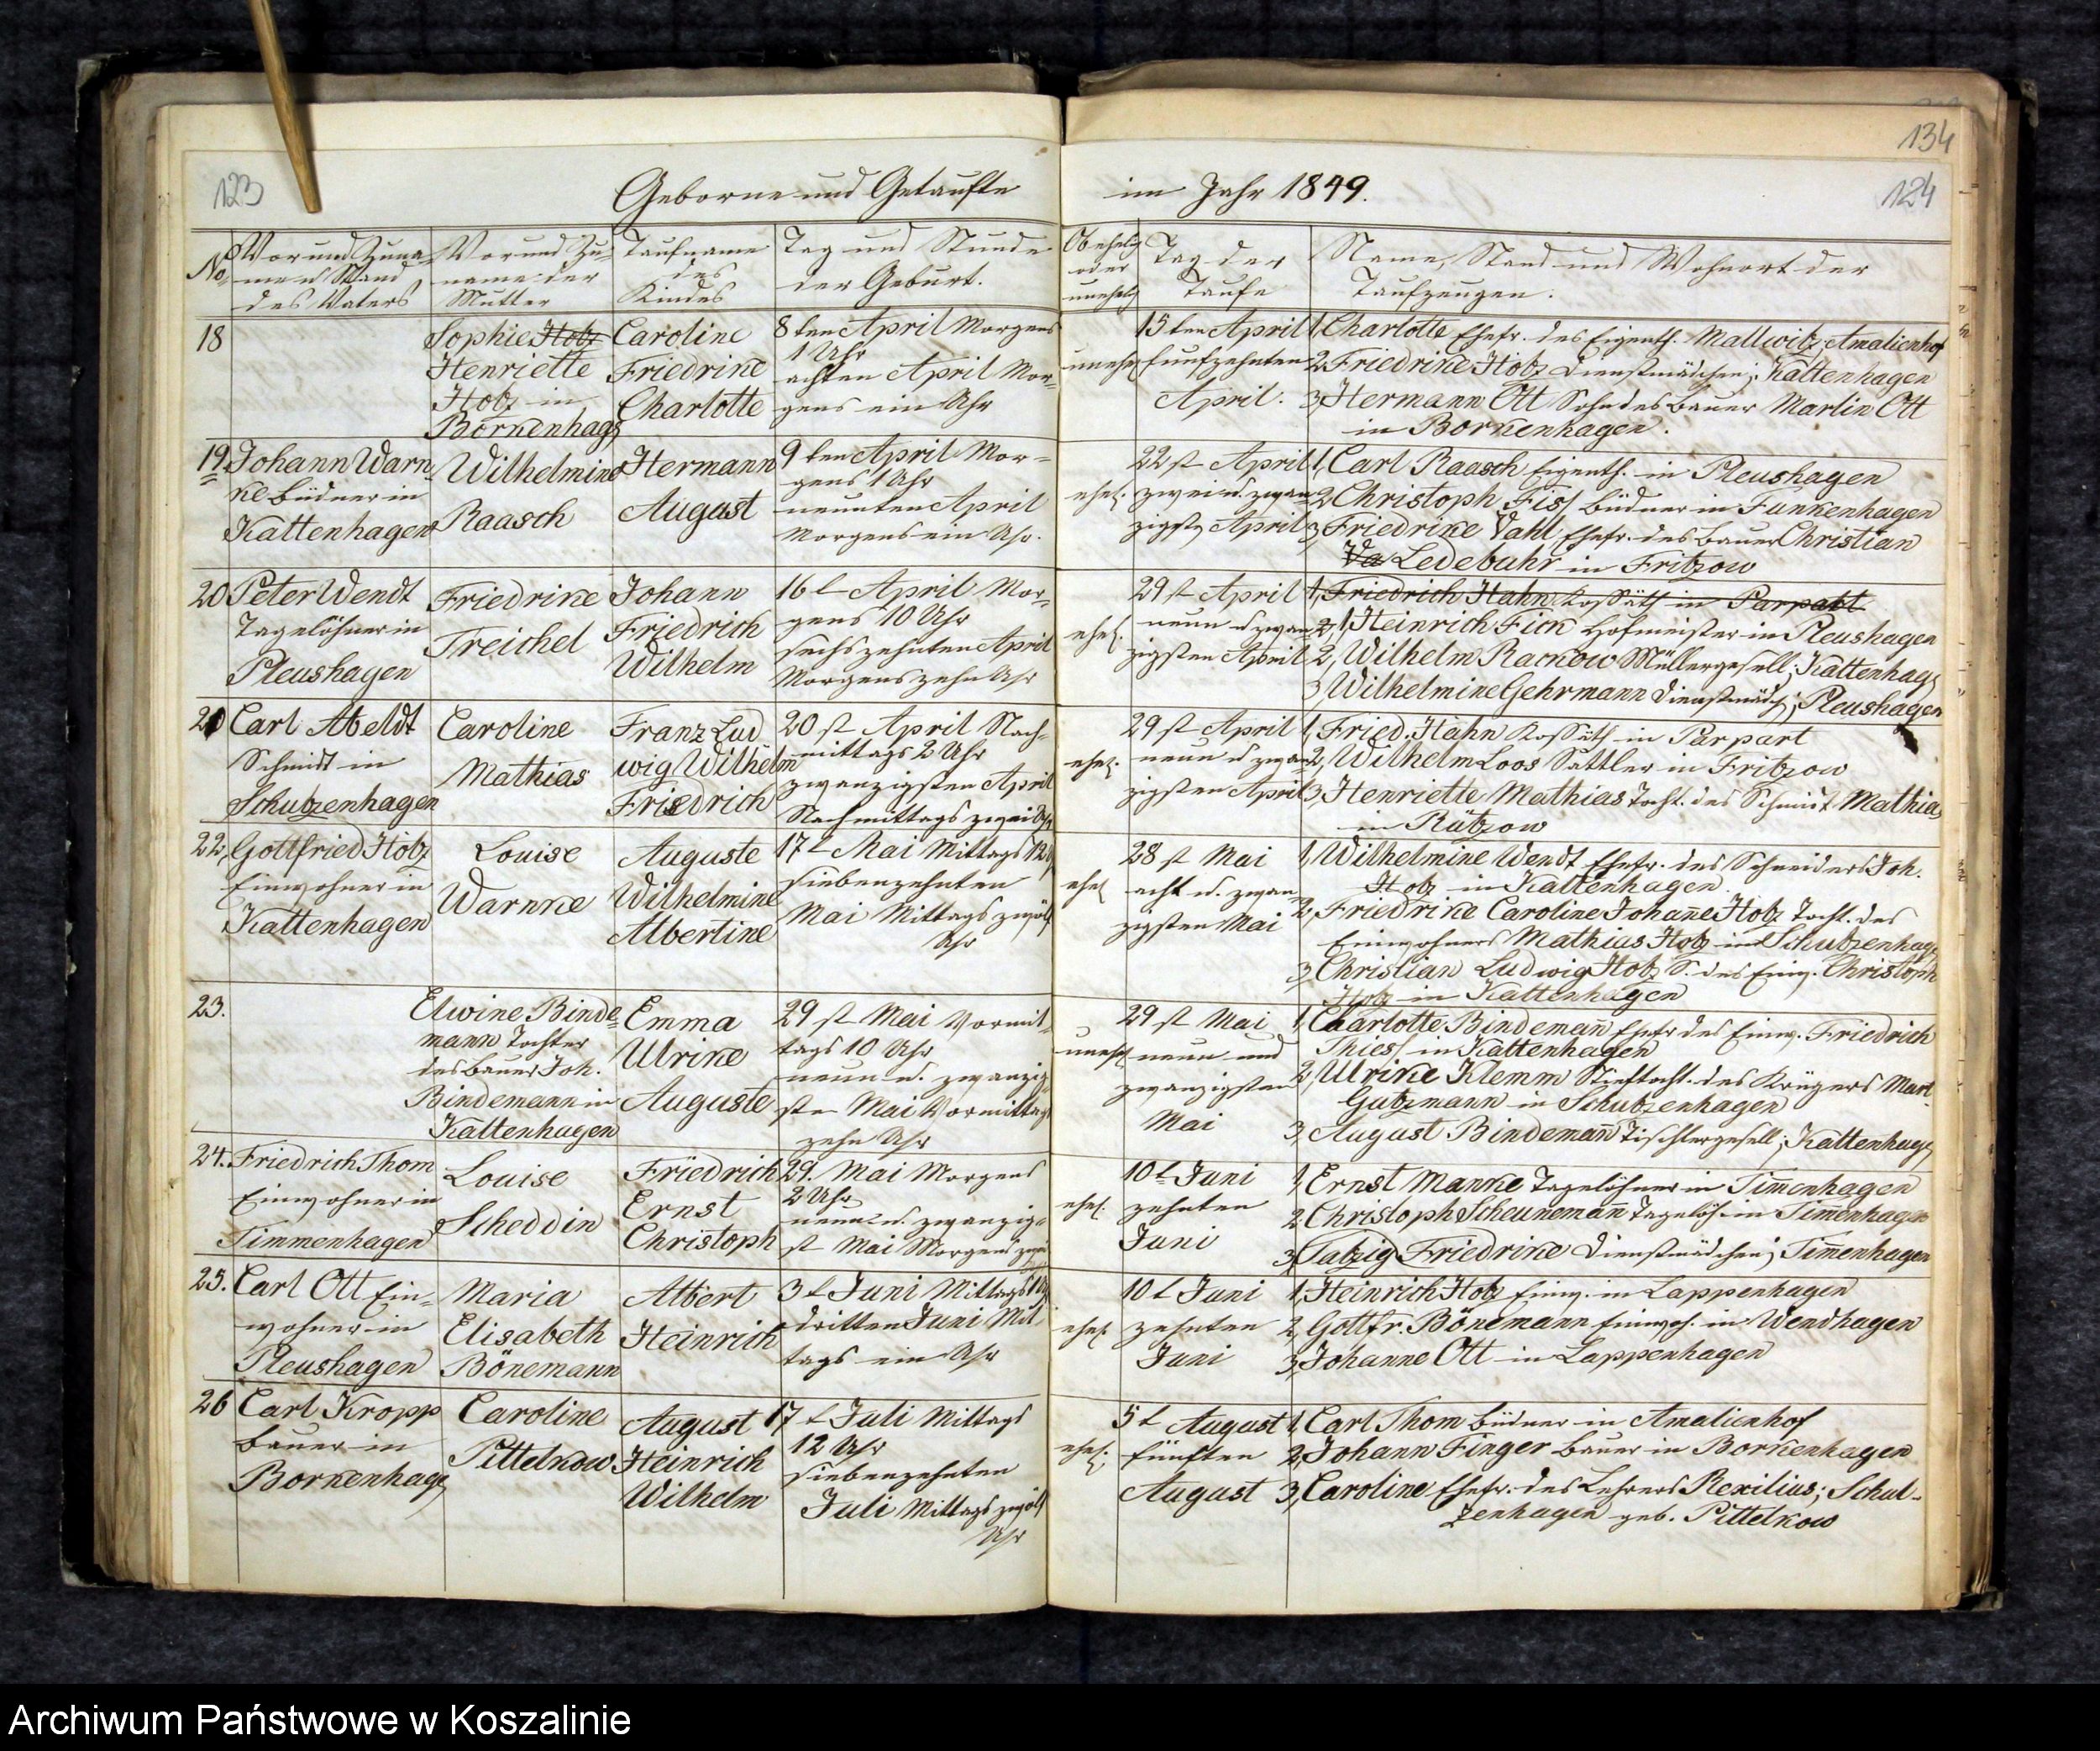 134
123
Geborne und Getaufte
im Jahr 1849.
124
No.
Vor und Zuna-
men u Stand
des Vaters
Vor und Zu-
name der
Mutter
Taufname
des
Kindes
Tag und Stunde
der Geburt.
Ob ehelig
oder
unehelig
Tag der
Taufe
Name, Stand und Wohnort der
Taufzeugen.
18
Sophie Holz
Henriette
Holz in
Borkenhag
Caroline
Friedrike
Charlotte
8ten April Morgens
1 Uhr
achten April Mor-
gens ein Uhr
unehe
15ten April
funfzehnten
April.
1, Charlotte Ehefr. des Eigenth. Mallwitz; Amalienhof
2 Friedrike Holz Dienstmädchen; Kattenhagen
3, Hermann Ott Sohn des Bauer Martin Ott
in Borkenhagen.
19.
Johann Warn-
ke Büdner in
Kattenhagen
Wilhelmine
Raasch
Hermann
August
9ten April Mor-
gens 1 Uhr
neunten April
Morgens ein Uhr.
ehel.
22st April
zwei u. zwan
zigst April
1, Carl Raasch Eigenth. in Pleushagen
2 Christoph Fiss Büdner in Funkenhagen
3, Friedrike Vahl, Ehefr. des Bauer Christian
Va Ledebuhr in Fritzow
20
Peter Wendt
Tagelöhner in
Pleushagen
Friedrike
Treichel
Johann
Friedrich
Wilhelm
16t April Mor-
gens 10 Uhr
sechszehnten April
Morgens zehn Uhr
ehel.
29st April
neun u zwan
zigsten April
1, Friedrich Hahn Kossäth in Parpart
2, 1, Heinrich Fick Hofmeister in Pleushagen
2, Wilhelm Rackow Müllergesell; Kattenhag
3, Wilhelmine Gehrmann Dienstmädch; Pleushagen
21
Carl Abeldt
Schmidt in
Schulzenhagen
Caroline
Mathias
Franz Lud
wig Wilhelm
Friedrich
20st April Nach-
mittags 2 Uhr
zwanzigsten April
Nachmittags zwei Uhr
ehel.
29st April
neun u zwan
zigsten April
1, Fried. Hahn Kossäth in Parpart
2, Wilhelm Loos Sattler in Fritzow
3, Henriette Mathias Tocht. des Schmidt Mathias
in Rützow
22,
Gottfried Holz
Einwohner in
Kattenhagen
Louise
Warnke
Auguste
Wilhelmine
Albertine
17t Mai Mittags 12 Uhr
siebenzehnten
Mai Mittags zwölf
Uhr
ehel
28st Mai
acht u. zwan-
zigsten Mai
1, Wilhelmine Wendt Ehefr. des Schneiders Joh.
Holz in Kattenhagen.
2, Friedrike Caroline Johañe Holz Tocht. des
Einwohners Mathias Holz in Schulzenhag
3, Christian Ludwig Holz S. des Einw. Christoph
Holz in Kattenhagen
23.
Elwine Binde-
mann Tochter
des Bauer Joh.
Bindemann in
Kattenhagen
Emma
Ulrike
Auguste
29st Mai Vormit-
tags 10 Uhr
neun u. zwanzig-
ste Mai Vormittags
zehn Uhr
unehl
29st Mai
neun und
zwanzigsten
Mai
1, Charlotte Bindemañ Ehefr des Einw. Friedrich
Thiess in Kattenhagen
2, Ulrike Klemm Stieftocht. des Krügers Mart.
Gutzmann in Schulzenhagen
3, August Bindemañ Tischlergesell; Kattenhage
24.
Friedrich Thom
Einwohner in
Timmenhagen
Louise
Scheddin
Friedrich
Ernst
Christoph
29. Mai Morgens
2 Uhr
neun u. zwanzig-
st Mai Morgens zwei
ehel.
10t Juni
zehnten
Juni
1, Ernst Manke Tagelöhner in Tim̃enhagen
2 Christoph Scheunemañ Tagelöh. in Tim̃enhagen
3, Tatzig Friedrike Dienstmädchen; Tim̃enhagen
25.
Carl Ott Ein-
wohner in
Pleushagen
Maria
Elisabeth
Bönemann
Albert
Heinrich
3t Juni Mittags 1 Uhr
dritten Juni Mit-
tags ein Uhr
ehel.
10t Juni
zehnten
Juni
1, Heinrich Holz Einw. in Lappenhagen
2, Gottfr. Bönemann Einwoh. in Wendhagen
3, Johanne Ott in Lappenhagen
26
Carl Kropp
Bauer in
Borkenhage
Caroline
Pittelkow
August
Heinrich
Wilhelm
17t Juli Mittags
12 Uhr
siebenzehnten
Juli Mittags zwölf
Uhr
ehel.
5t August
fünften
August
1, Carl Thom Büdner in Amalienhof
2, Johann Finger Bauer in Borkenhagen
3, Caroline Ehefr. des Lehrers Rexilius; Schul-
zenhagen geb. Pittelkow
Archiwum Państwowe w Koszalinie